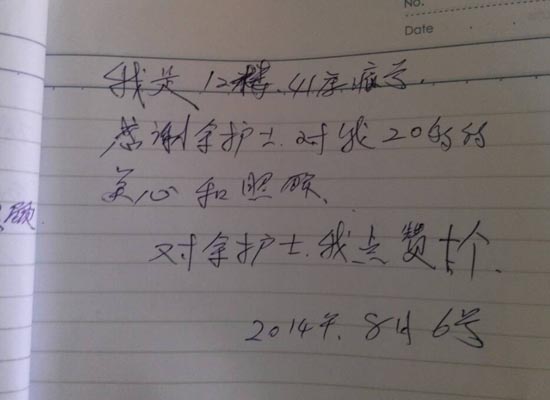 No.
Date
我是12楼、41床病号.
感谢余护士、对我20的的
关心和照顾、
顾.
对余护士、我点赞十个.
2014年、8月6号